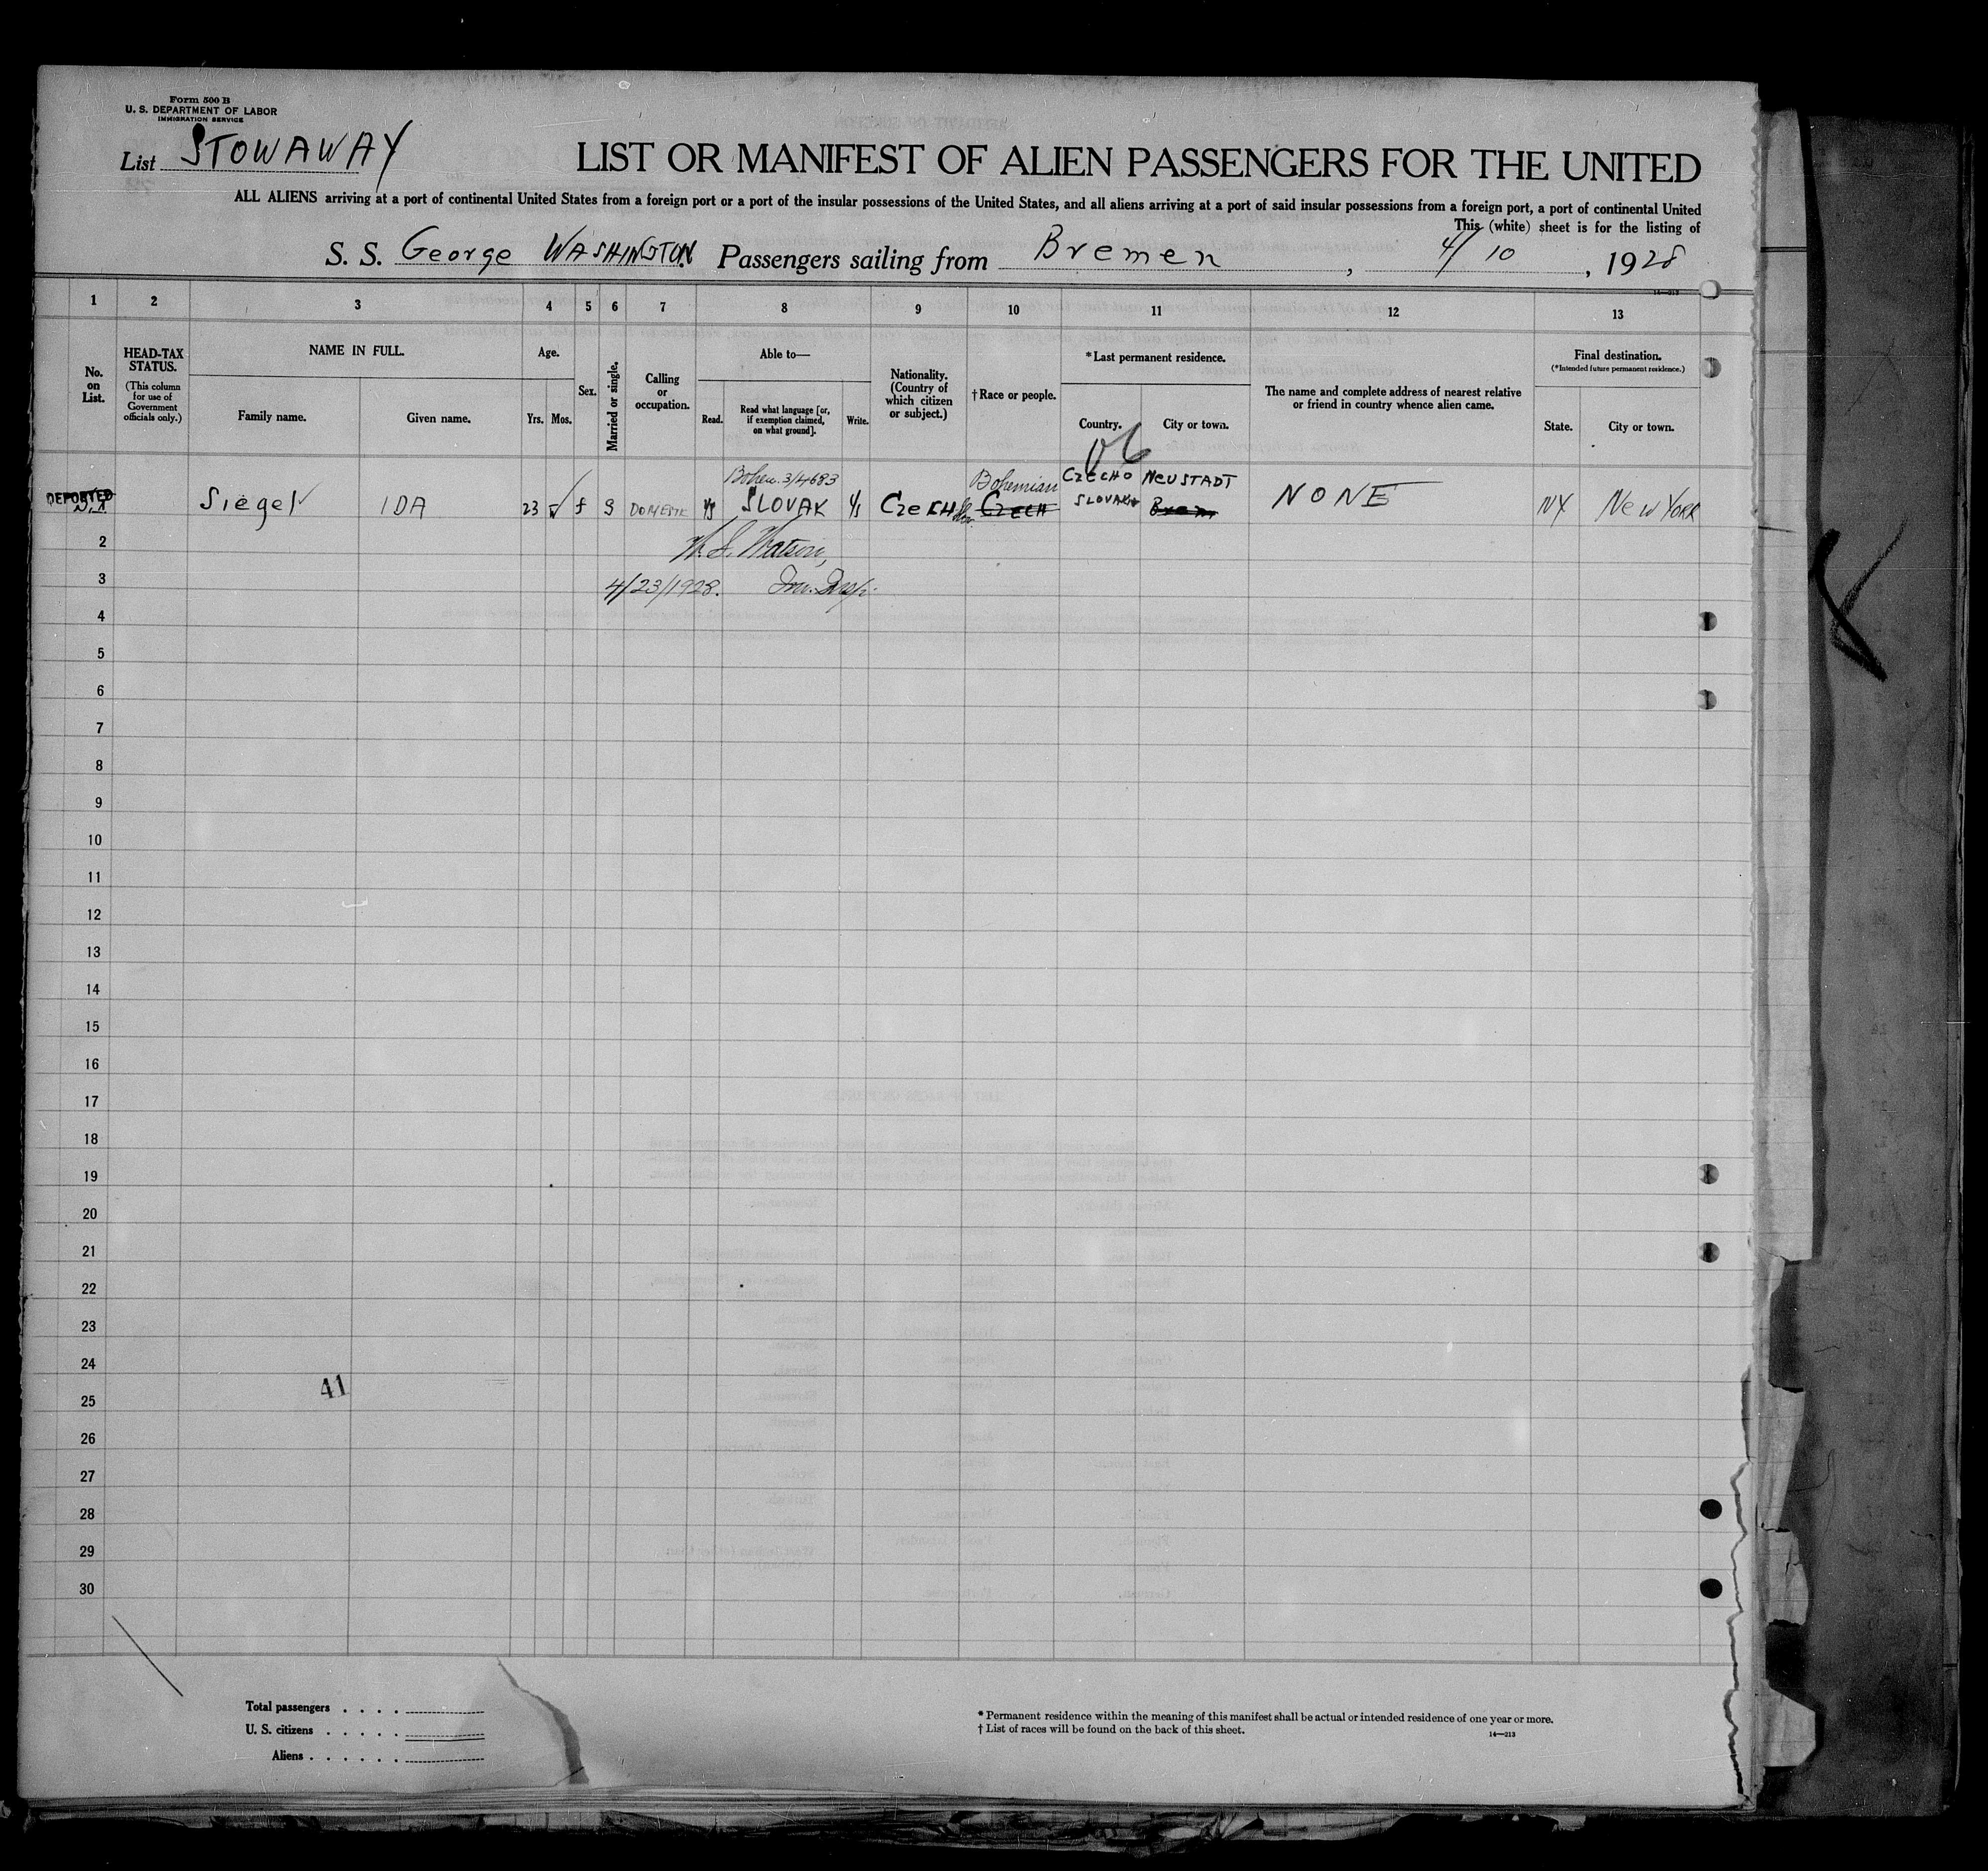 Form 500 B
U. S. DEPARTMENT OF LABOR
IMMIGRATION SERVICE
List STOWAWAY
LIST OR MANIFEST OF ALIEN PASSENGERS FOR THE UNITED
ALL ALIENS arriving at a port of continental United States from a foreign port or a port of the insular possessions of the United States, and all aliens arriving at a port of said insular possessions from a foreign port, a port of continental United
This (white) sheet is for the listing of
S. S. George WASHINGTON Passengers sailing from Bremen, 4/10, 1928
14—213
1 2 3 4 5 6 7 8 9 10 11 12 13
No. on List.
HEAD-TAX STATUS.
(This column for use of Government officials only.)
NAME IN FULL.
Family name.
Given name.
Age.
Yrs. Mos.
Sex.
Married or single.
Calling or occupation.
Able to—
Read.
Read what language [or, if exemption claimed, on what ground].
Write.
Nationality. (Country of which citizen or subject.)
†Race or people.
*Last permanent residence.
Country.
City or town.
The name and complete address of nearest relative or friend in country whence alien came.
Final destination.
(*Intended future permanent residence.)
State.
City or town.
Bohem. 3/4683 Bohemian CZECHO NEUSTADT
DEPORTED Siegel IDA 23 f S DOMESTIC SLOVAK CZECH CZECH SLOVAK NONE NY New YORK
2
3 4/23/1928.
4
5
6
7
8
9
10
11
12
13
14
15
16
17
18
19
20
21
22
23
24
41
25
26
27
28
29
30
Total passengers
U. S. citizens
Aliens
* Permanent residence within the meaning of this manifest shall be actual or intended residence of one year or more.
† List of races will be found on the back of this sheet.
14—213